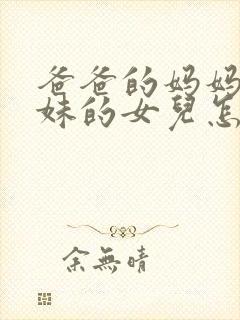 爸爸的妈妈
妹的女兒怎
余無晴